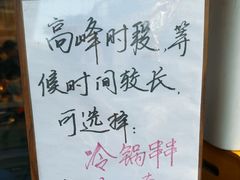 高峰时段,等
候时间较长,
可选择:
冷锅串串